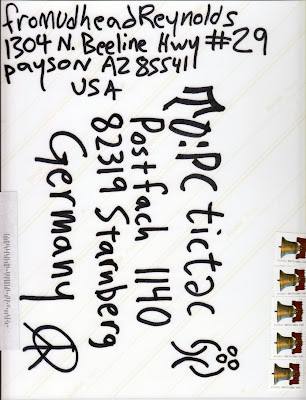 fromUdheadReynolds
1304 N. Beeline Hwy #29
payson AZ 85541
USA
To: PC tictac
Postfach 1140
82319 Starnberg
Germany